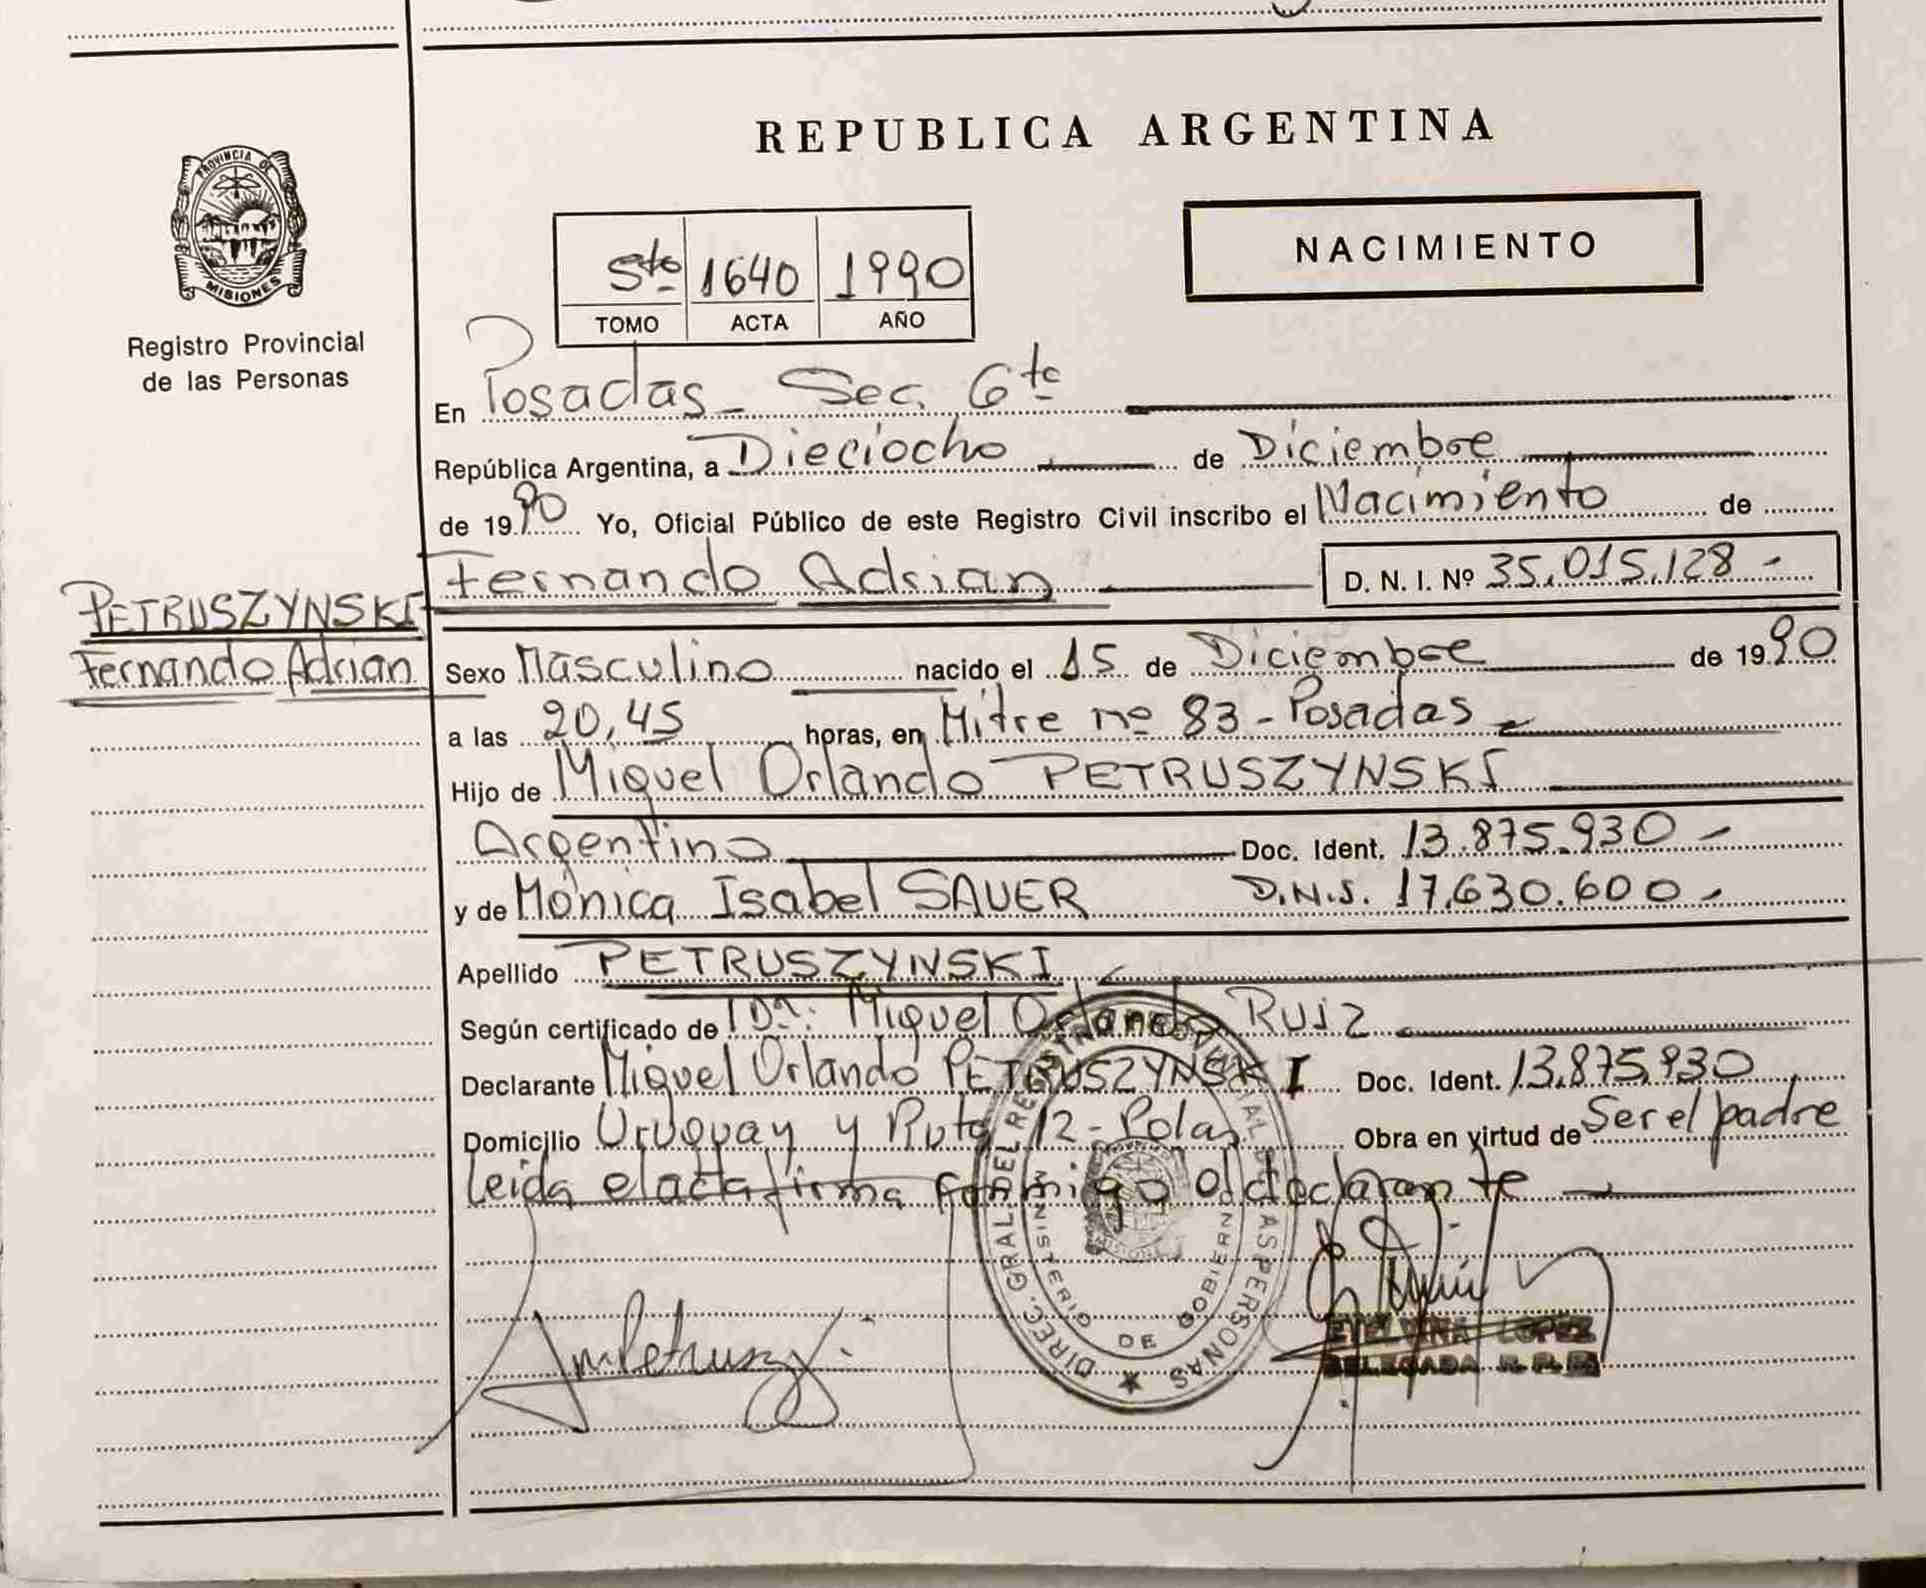 REPUBLICA ARGENTINA
PROVINCIA DE MISIONES
Registro Provincial
de las Personas
NACIMIENTO
5to 1640 1990
TOMO ACTA AÑO
En Posadas - Sec. 6ta
República Argentina, a Dieciocho de Diciembre
de 1990 Yo, Oficial Público de este Registro Civil inscribo el Nacimiento de
Fernando Adrian D. N. I. Nº 35.015.128 -
PETRUSZYNSKI
Fernando Adrian
Sexo Masculino nacido el 15 de Diciembre de 1990
a las 20,45 horas, en Mitre nº 83 - Posadas
Hijo de Miguel Orlando PETRUSZYNSKI
Argentino Doc. Ident. 13.875.930 -
y de Mónica Isabel SAUER D.N.I. 17.630.600 -
Apellido PETRUSZYNSKI
Según certificado de Dr: Miguel Orlando RUIZ
Declarante Miguel Orlando PETRUSZYNSKI Doc. Ident. 13.875.930
Domicilio Uruguay y Ruta 12 - Pdas Obra en virtud de Ser el padre
Leida el acta firma conmigo el declarante
DIREC. GRAL. DEL REGISTRO PROVINCIAL DE LAS PERSONAS
MINISTERIO DE GOBIERNO
LOPEZ
DELEGADA R. P. P.